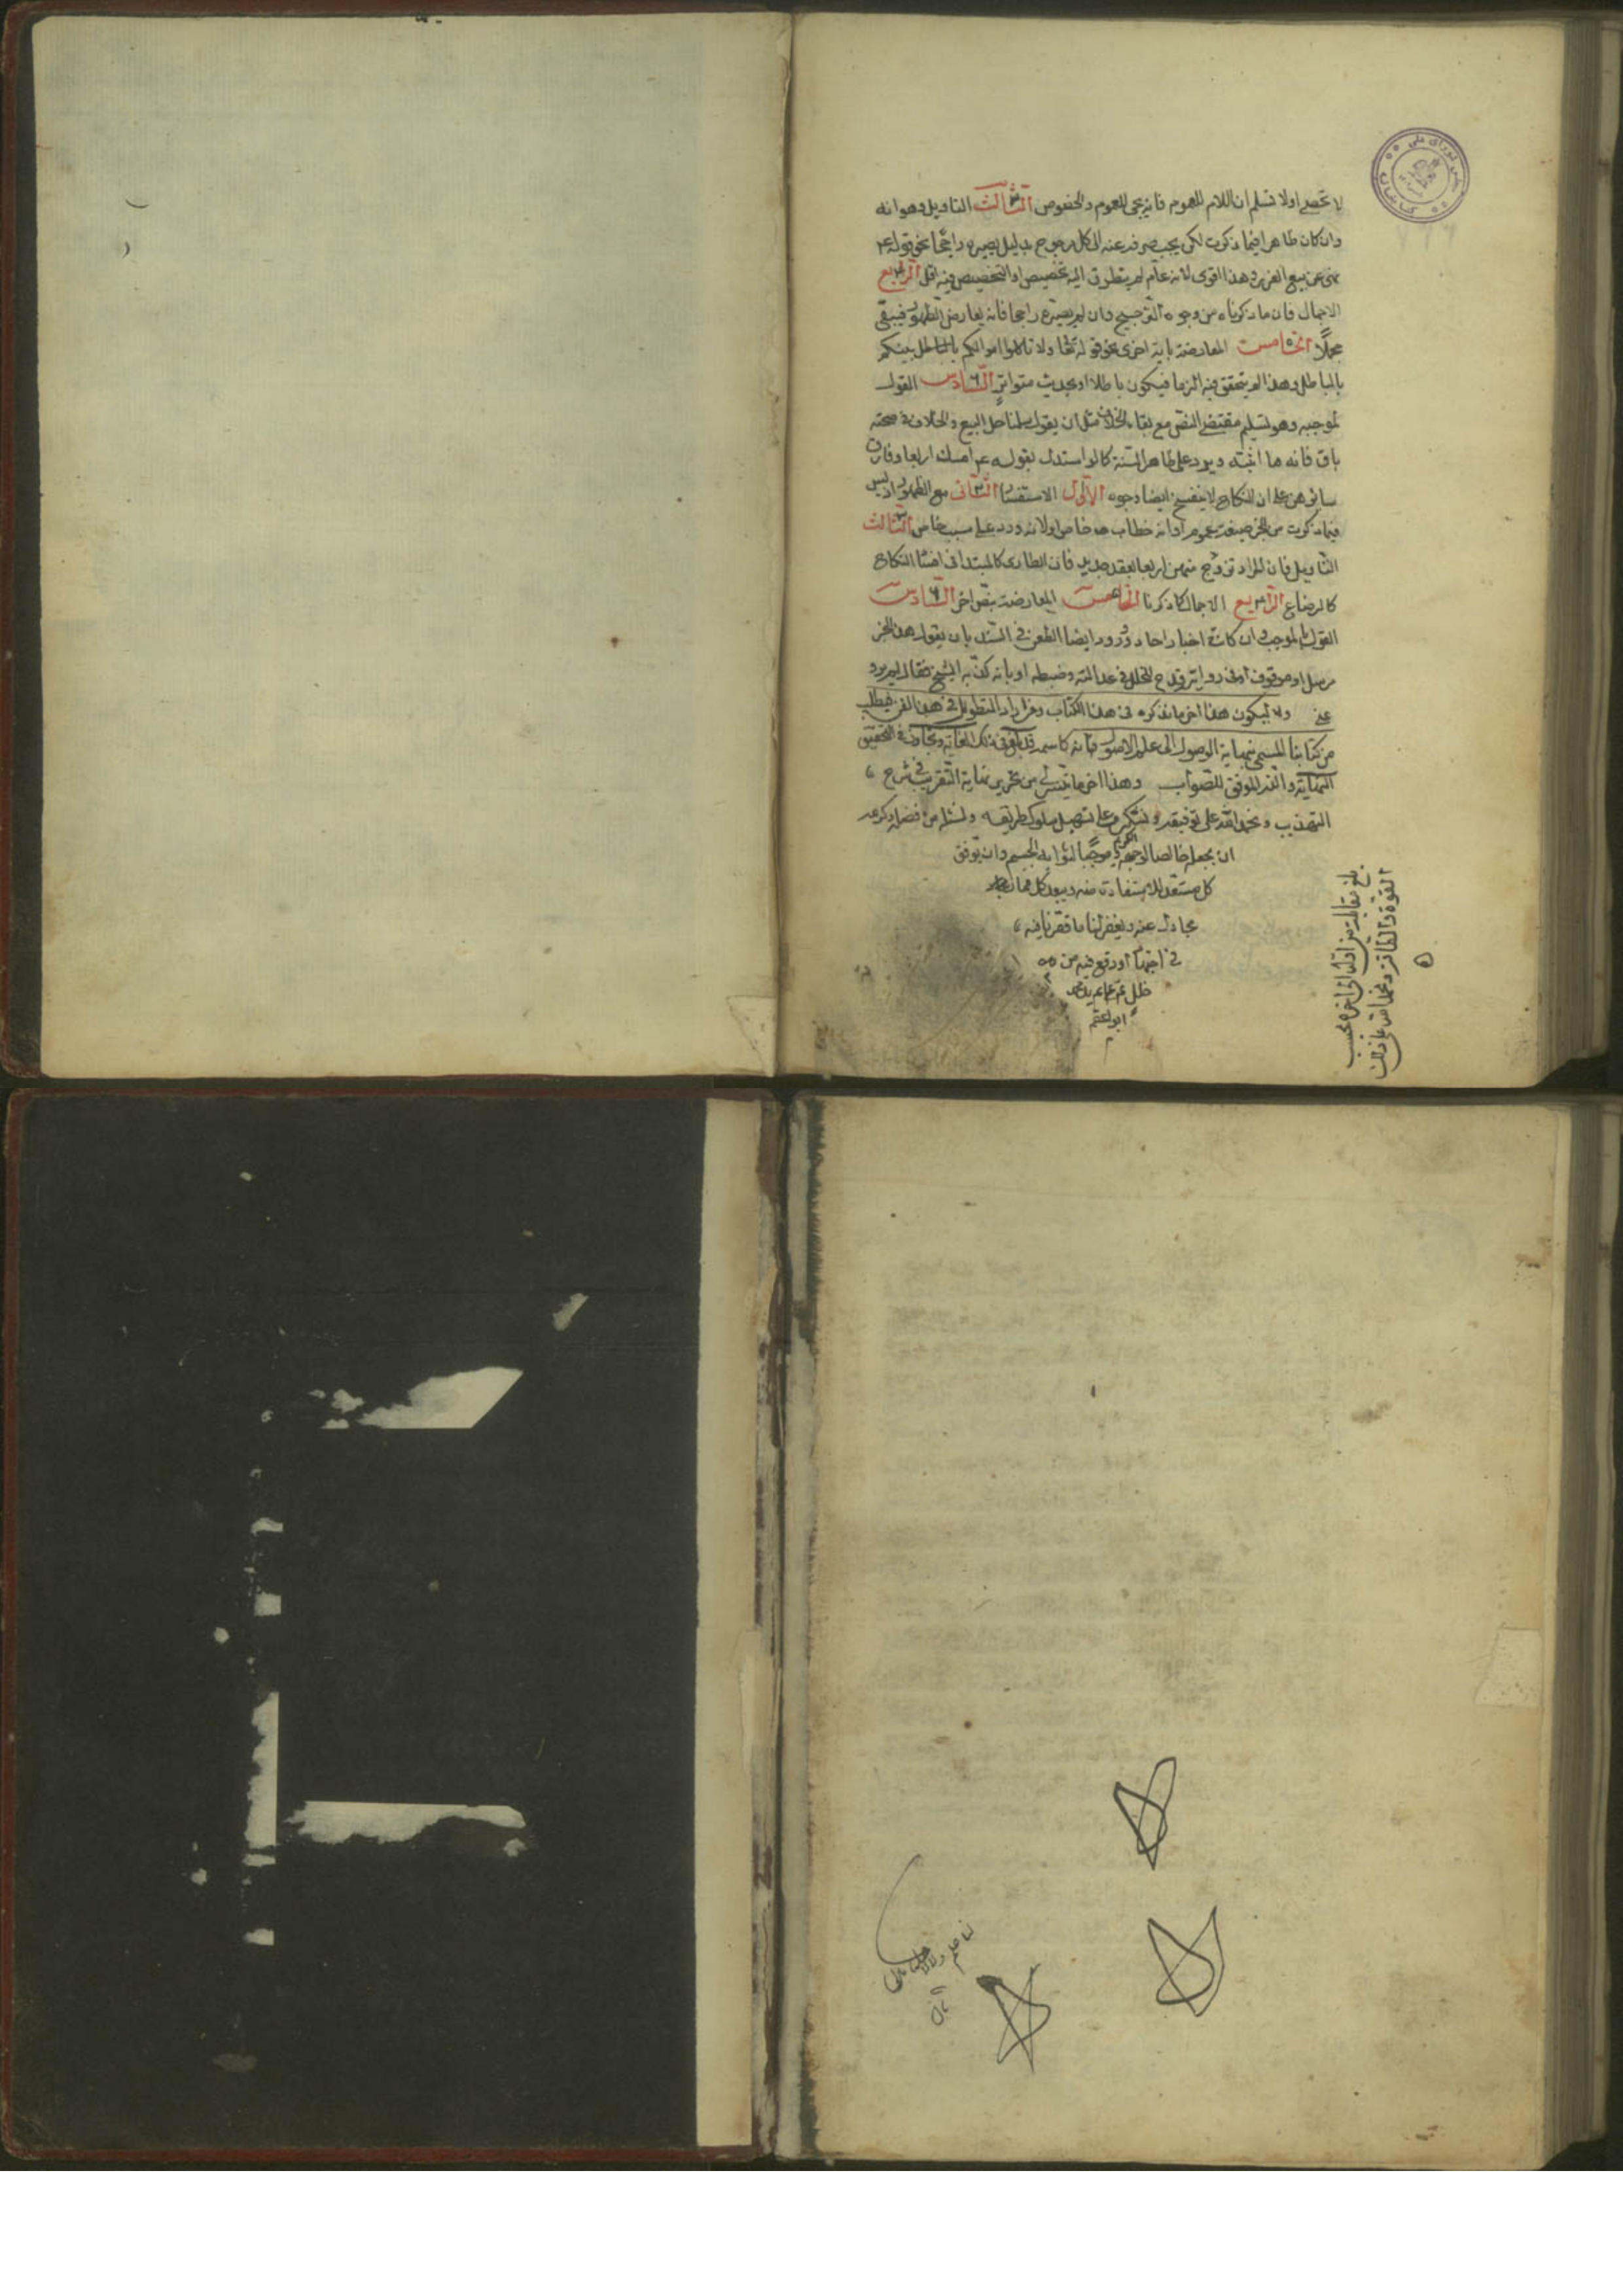 لا تحصى اولا نسلم ان اللام للعموم فانه يجئ للعموم والخصوص الثالث التاويل وهو انه
وان كان ظاهرا فيما ذكرت لكن يجب صرفه عنه الى محمل مرجوح بدليل يصيره راجحا نحو قوله ع
نهى عن بيع الغرر وهذا اقوى لانه عام لم يتطرق اليه تخصيص او التخصيص فيه اقل الرابع
الاجمال فان ما ذكرناه من وجوه الترجيح وان لم يصيره راجحا فانه يعارض الظهور فيبقى
مجملا الخامس المعارضة باية اخرى نحو قوله تعالى ولا تاكلوا اموالكم بالباطل بينكم
بالباطل وهذا لم يتحقق فيه الرضا فيكون باطلا او بحديث متواتر السادس القول
بموجبه وهو تسليم مقتضى النص مع بقاء الخلاف مثل ان يقول سلمنا حل البيع والخلاف في صحته
باق فانه ما اثبته ويرد على ظاهر السنة كما لو استدل بقوله ع امسك اربعا وفارق
سائرهن على ان النكاح لا ينفسخ ايضا وجوه الاول الاستفسار الثاني منع الظهور اذ ليس
فيما ذكرت من الخبر صيغة عموم او انه خطاب خاص او لانه ورد على سبب خاص الثالث
التاويل فان المراد تزوج منهن اربعا بعقد جديد فان الطارى كالمبتدا في افساد النكاح
كالرضاع الرابع الاجمال كما ذكرنا الخامس المعارضة بنص اخر السادس
القول بالموجب وان كانت اخبار احاد ورد ايضا الطعن في السند بان يقول هذا الخبر
مرسل او موقوف او في روايته قدح لخلل في عدالته وضبطه او بانه كذبه الشيخ فقال لم يرو
عني وليكن هذا اخر ما نذكره في هذا الكتاب ومن اراد التطويل في هذا الفن فيطلب
من كتابنا المسمى بنهاية الوصول الى علم الاصول فانه كاسمه قد بلغ في ذلك الغاية وتجاوز في التحقيق
النهاية والله الموفق للصواب وهذا اخر ما تيسر لي من تحرير نهاية التقريب في شرح
التهذيب ونحمد الله على توفيقه ونشكره على تسهيل سلوك طريقه ونسئله من فضله وكرمه
ان يجعله خالصا لوجهه الكريم موجبا لثوابه الجسيم وان يوفق
كل مستعد للاستفادة منه
مجادل عنه ويغفر لنا ما قصرنا فيه
في اجتهاد او وقع فيه من
بلغ مقابلة من اوله الى اخره بحسب
القوة والطاقة ونحمد الله على ذلك